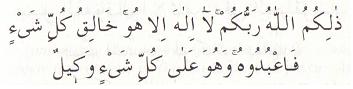 ذٰلِكُمُ اللّٰهُ رَبُّكُمْ ۚ لَآ اِلٰهَ اِلَّا هُوَ ۚ خَالِقُ كُلِّ شَىْءٍ
فَاعْبُدُوهُ ۚ وَهُوَ عَلٰى كُلِّ شَىْءٍ وَكِيلٌ